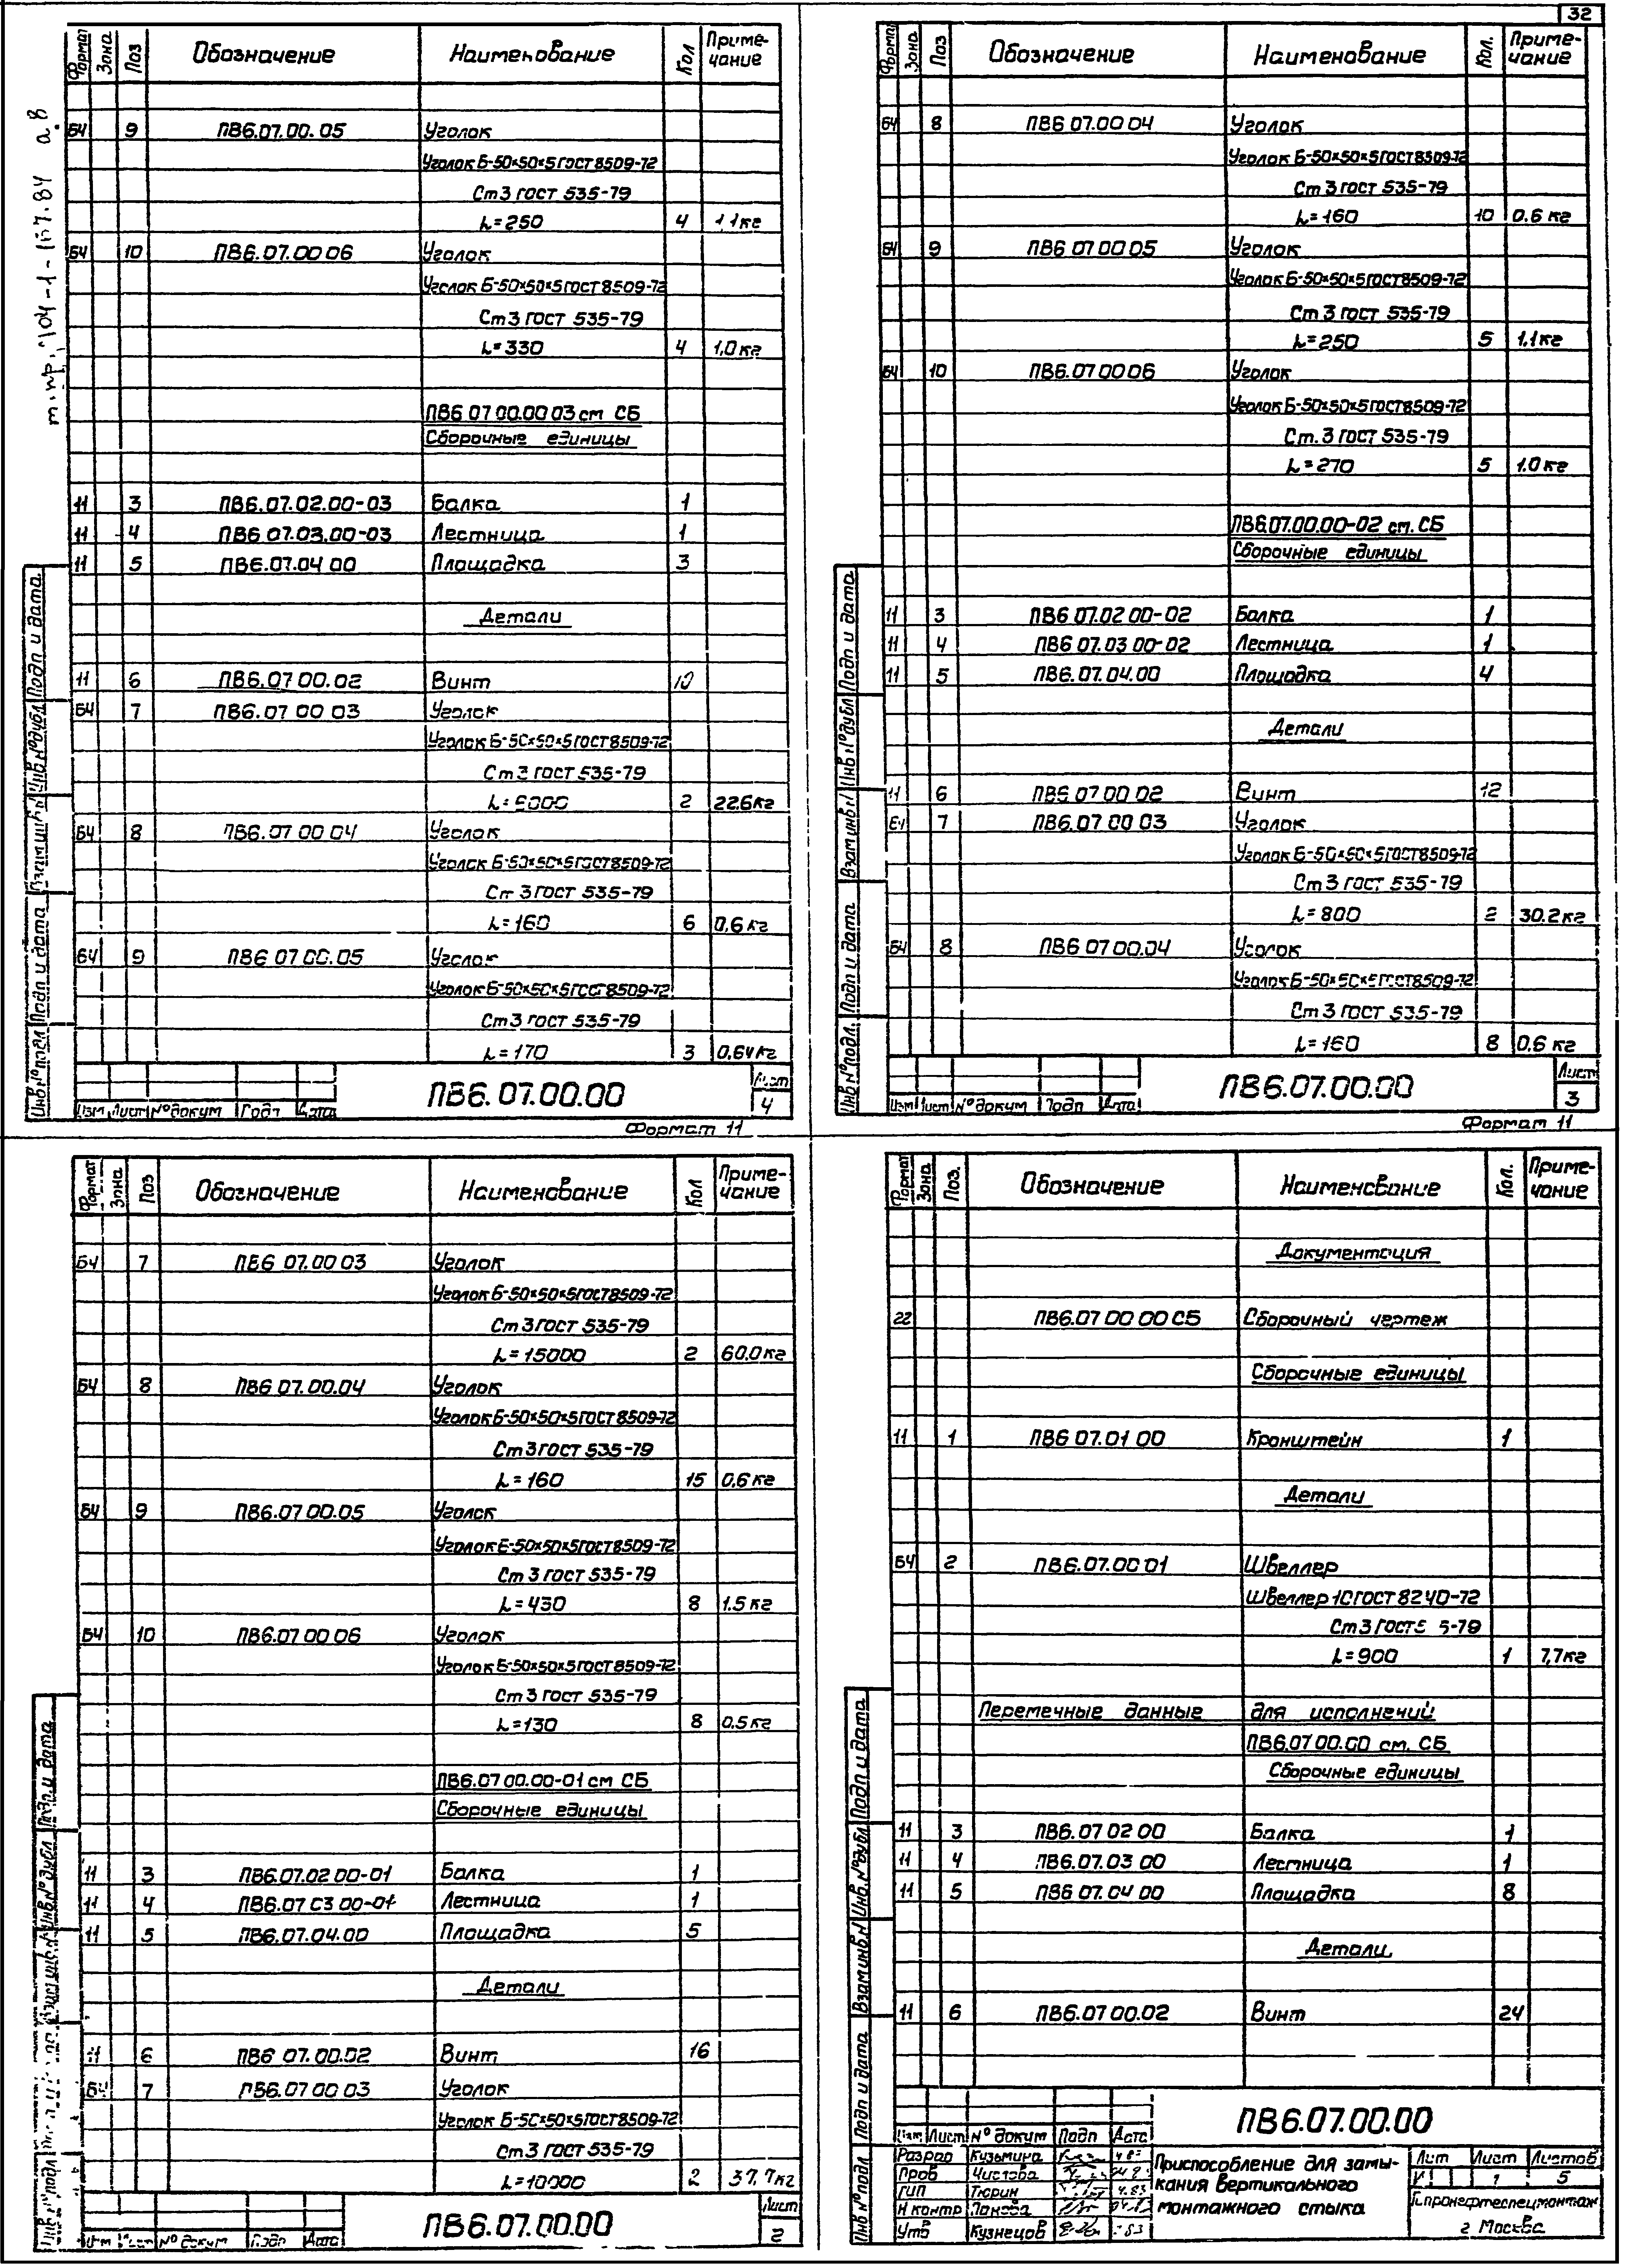 32
т.пр. 704-1-167.84 а.8
Формат Зона Поз Обозначение Наименование Кол Приме-чание
БЧ 9 ПВ6.07.00.05 Уголок
Уголок Б-50×50×5 ГОСТ 8509-72
Ст3 ГОСТ 535-79
L=250 4 1,1кг
БЧ 10 ПВ6.07.00 06 Уголок
Уголок Б-50×50×5 ГОСТ 8509-72
Ст3 ГОСТ 535-79
L=330 4 1,0кг
ПВ6 07 00.00 03 см СБ
Сборочные единицы
11 3 ПВ6.07.02.00-03 Балка 1
11 4 ПВ6.07.03.00-03 Лестница 1
11 5 ПВ6.07.04 00 Площадка 3
Детали
11 6 ПВ6.07 00.02 Винт 10
БЧ 7 ПВ6.07 00 03 Уголок
Уголок Б-50×50×5 ГОСТ 8509-72
Ст3 ГОСТ 535-79
L=6000 2 22.6кг
БЧ 8 ПВ6.07 00 04 Уголок
Уголок Б-50×50×5 ГОСТ 8509-72
Ст3 ГОСТ 535-79
L=160 6 0,6кг
БЧ 9 ПВ6 07 00.05 Уголок
Уголок Б-50×50×5 ГОСТ 8509-72
Ст3 ГОСТ 535-79
L=170 3 0,64кг
Инв№подл Подп и дата Взам инв№ Инв№дубл Подп и дата
Изм Лист №докум Подп Дата
ПВ6.07.00.00
Лист
4
Формат 11
Формат Зона Поз Обозначение Наименование Кол. Приме-чание
БЧ 8 ПВ6 07.00 04 Уголок
Уголок Б-50×50×5 ГОСТ 8509-72
Ст3 ГОСТ 535-79
L=160 10 0.6 кг
БЧ 9 ПВ6 07 00 05 Уголок
Уголок Б-50×50×5 ГОСТ 8509-72
Ст3 ГОСТ 535-79
L=250 5 1,1кг
БЧ 10 ПВ6.07 00 06 Уголок
Уголок Б-50×50×5 ГОСТ 8509-72
Ст.3 ГОСТ 535-79
L=270 5 1.0кг
ПВ6.07.00.00-02 см. СБ
Сборочные единицы
11 3 ПВ6 07.02 00-02 Балка 1
11 4 ПВ6 07.03 00-02 Лестница 1
11 5 ПВ6.07.04.00 Площадка 4
Детали
11 6 ПВ6 07 00 02 Винт 12
БЧ 7 ПВ6.07 00 03 Уголок
Уголок Б-50×50×5 ГОСТ 8509-72
Ст3 ГОСТ 535-79
L=800 2 30.2кг
БЧ 8 ПВ6 07 00.04 Уголок
Уголок Б-50×50×5 ГОСТ 8509-72
Ст3 ГОСТ 535-79
L=160 8 0,6 кг
Инв№подл. Подп и дата Взам инв№ Инв№дубл Подп и дата
Изм Лист №докум Подп Дата
ПВ6.07.00.00
Лист
3
Формат 11
Формат Зона Поз Обозначение Наименование Кол Приме-чание
БЧ 7 ПВ6 07.00 03 Уголок
Уголок Б-50×50×5 ГОСТ 8509-72
Ст3 ГОСТ 535-79
L=15000 2 60,0кг
БЧ 8 ПВ6 07.00.04 Уголок
Уголок Б-50×50×5 ГОСТ 8509-72
Ст3 ГОСТ 535-79
L=160 15 0,6 кг
БЧ 9 ПВ6.07 00.05 Уголок
Уголок Б-50×50×5 ГОСТ 8509-72
Ст3 ГОСТ 535-79
L=430 8 1.5 кг
БЧ 10 ПВ6.07 00 06 Уголок
Уголок Б-50×50×5 ГОСТ 8509-72
Ст3 ГОСТ 535-79
L=130 8 0.5 кг
ПВ6.07 00.00-01 см СБ
Сборочные единицы
11 3 ПВ6.07.02 00-01 Балка 1
11 4 ПВ6.07 03 00-01 Лестница 1
11 5 ПВ6.07.04.00 Площадка 5
Детали
11 6 ПВ6 07.00.02 Винт 16
БЧ 7 ПВ6.07 00 03 Уголок
Уголок Б-50×50×5 ГОСТ 8509-72
Ст3 ГОСТ 535-79
L=10000 2 37,7кг
Подп. и дата Инв.№дубл
Изм Лист №докум Подп Дата
ПВ6.07.00.00
Лист
2
Формат Зона Поз. Обозначение Наименование Кол. Приме-чание
Документация
22 ПВ6.07 00 00 СБ Сборочный чертеж
Сборочные единицы
11 1 ПВ6 07.01 00 Кронштейн 1
Детали
БЧ 2 ПВ6.07.00 01 Швеллер
Швеллер 10 ГОСТ 8240-72
Ст3 ГОСТ 5 5-79
L=900 1 7,7кг
Переменные данные для исполнений
ПВ6.07 00.00 см. СБ
Сборочные единицы
11 3 ПВ6.07 02 00 Балка 1
11 4 ПВ6.07.03 00 Лестница 1
11 5 ПВ6 07.04 00 Площадка 8
Детали
11 6 ПВ6.07 00.02 Винт 24
Инв№подл Подп и дата Взам инв.№ Инв.№дубл Подп и дата
Изм Лист №докум Подп Дата
Разраб Кузьмина
Пров Чистова
ГИП Тюрин 4.83
Н контр Панова
Утв Кузнецов
ПВ6.07.00.00
Приспособление для замы-
кания вертикального
монтажного стыка
Лит Лист Листов
1 5
Гипронефтеспецмонтаж
г Москва